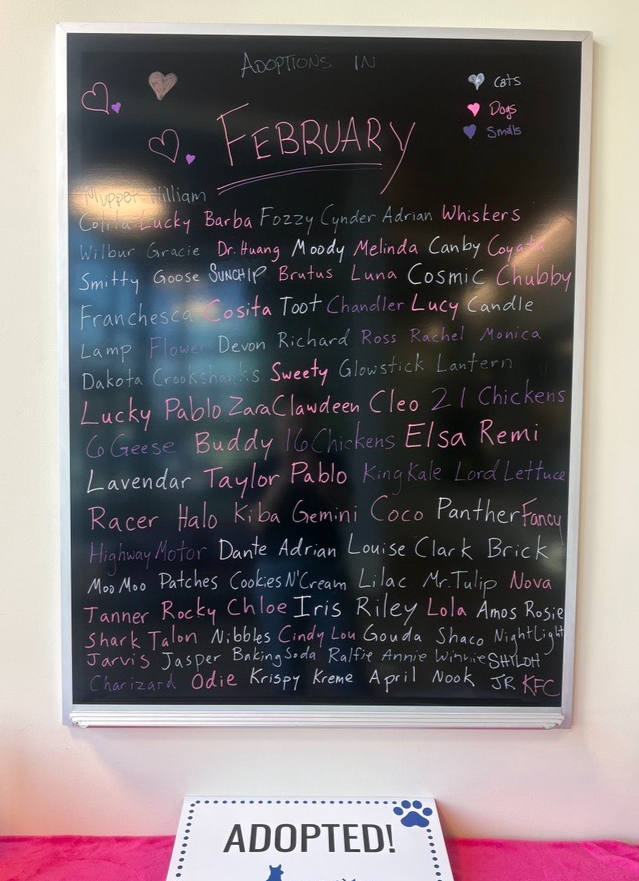 ADOPTIONS IN
Cats
Dogs
Smalls
FEBRUARY
Muppet William
Colita Lucky Barba Fozzy Cynder Adrian Whiskers
Wilbur Gracie Dr. Huang Moody Melinda Canby Coyota
Smitty Goose SUNCHIP Brutus Luna Cosmic Chubby
Franchesca Cosita Toot Chandler Lucy Candle
Lamp Flower Devon Richard Ross Rachel Monica
Dakota Crookshanks Sweety Glowstick Lantern
Lucky Pablo Zara Clawdeen Cleo 21 Chickens
6 Geese Buddy 16 Chickens Elsa Remi
Lavendar Taylor Pablo King Kale Lord Lettuce
Racer Halo Kiba Gemini Coco Panther Fancy
Highway Motor Dante Adrian Louise Clark Brick
Moo Moo Patches Cookies N'Cream Lilac Mr. Tulip Nova
Tanner Rocky Chloe Iris Riley Lola Amos Rosie
Shark Talon Nibbles Cindy Lou Gouda Shaco Nightlight
Jarvis Jasper Baking Soda Ralfie Annie Winnie SHILOH
Charizard Odie Krispy Kreme April Nook JR KFC
ADOPTED!